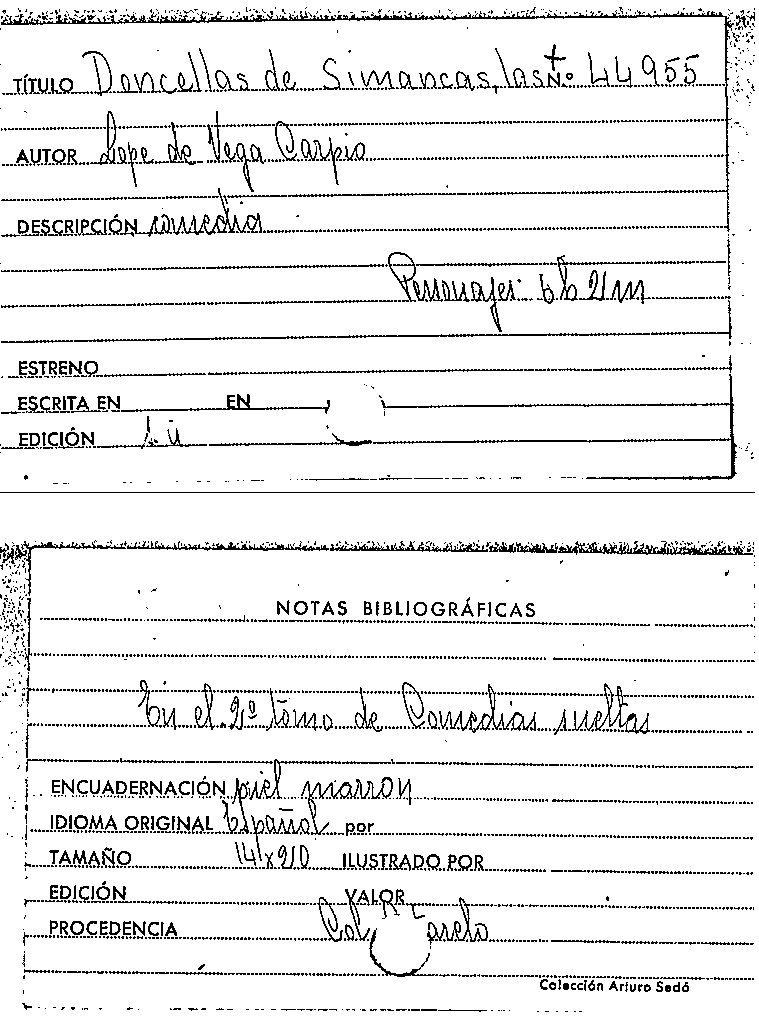 TÍTULO Doncellas de Simancas, las Nº 44955
AUTOR Lope de Vega Carpio
DESCRIPCIÓN comedia
Personajes: 6h 2m
ESTRENO
ESCRITA EN EN
EDICIÓN
NOTAS BIBLIOGRÁFICAS
En el 2º tomo de Comedias sueltas
ENCUADERNACIÓN piel marrón
IDIOMA ORIGINAL Español por
TAMAÑO ILUSTRADO POR
EDICIÓN VALOR
PROCEDENCIA Col.
Colección Arturo Sedó